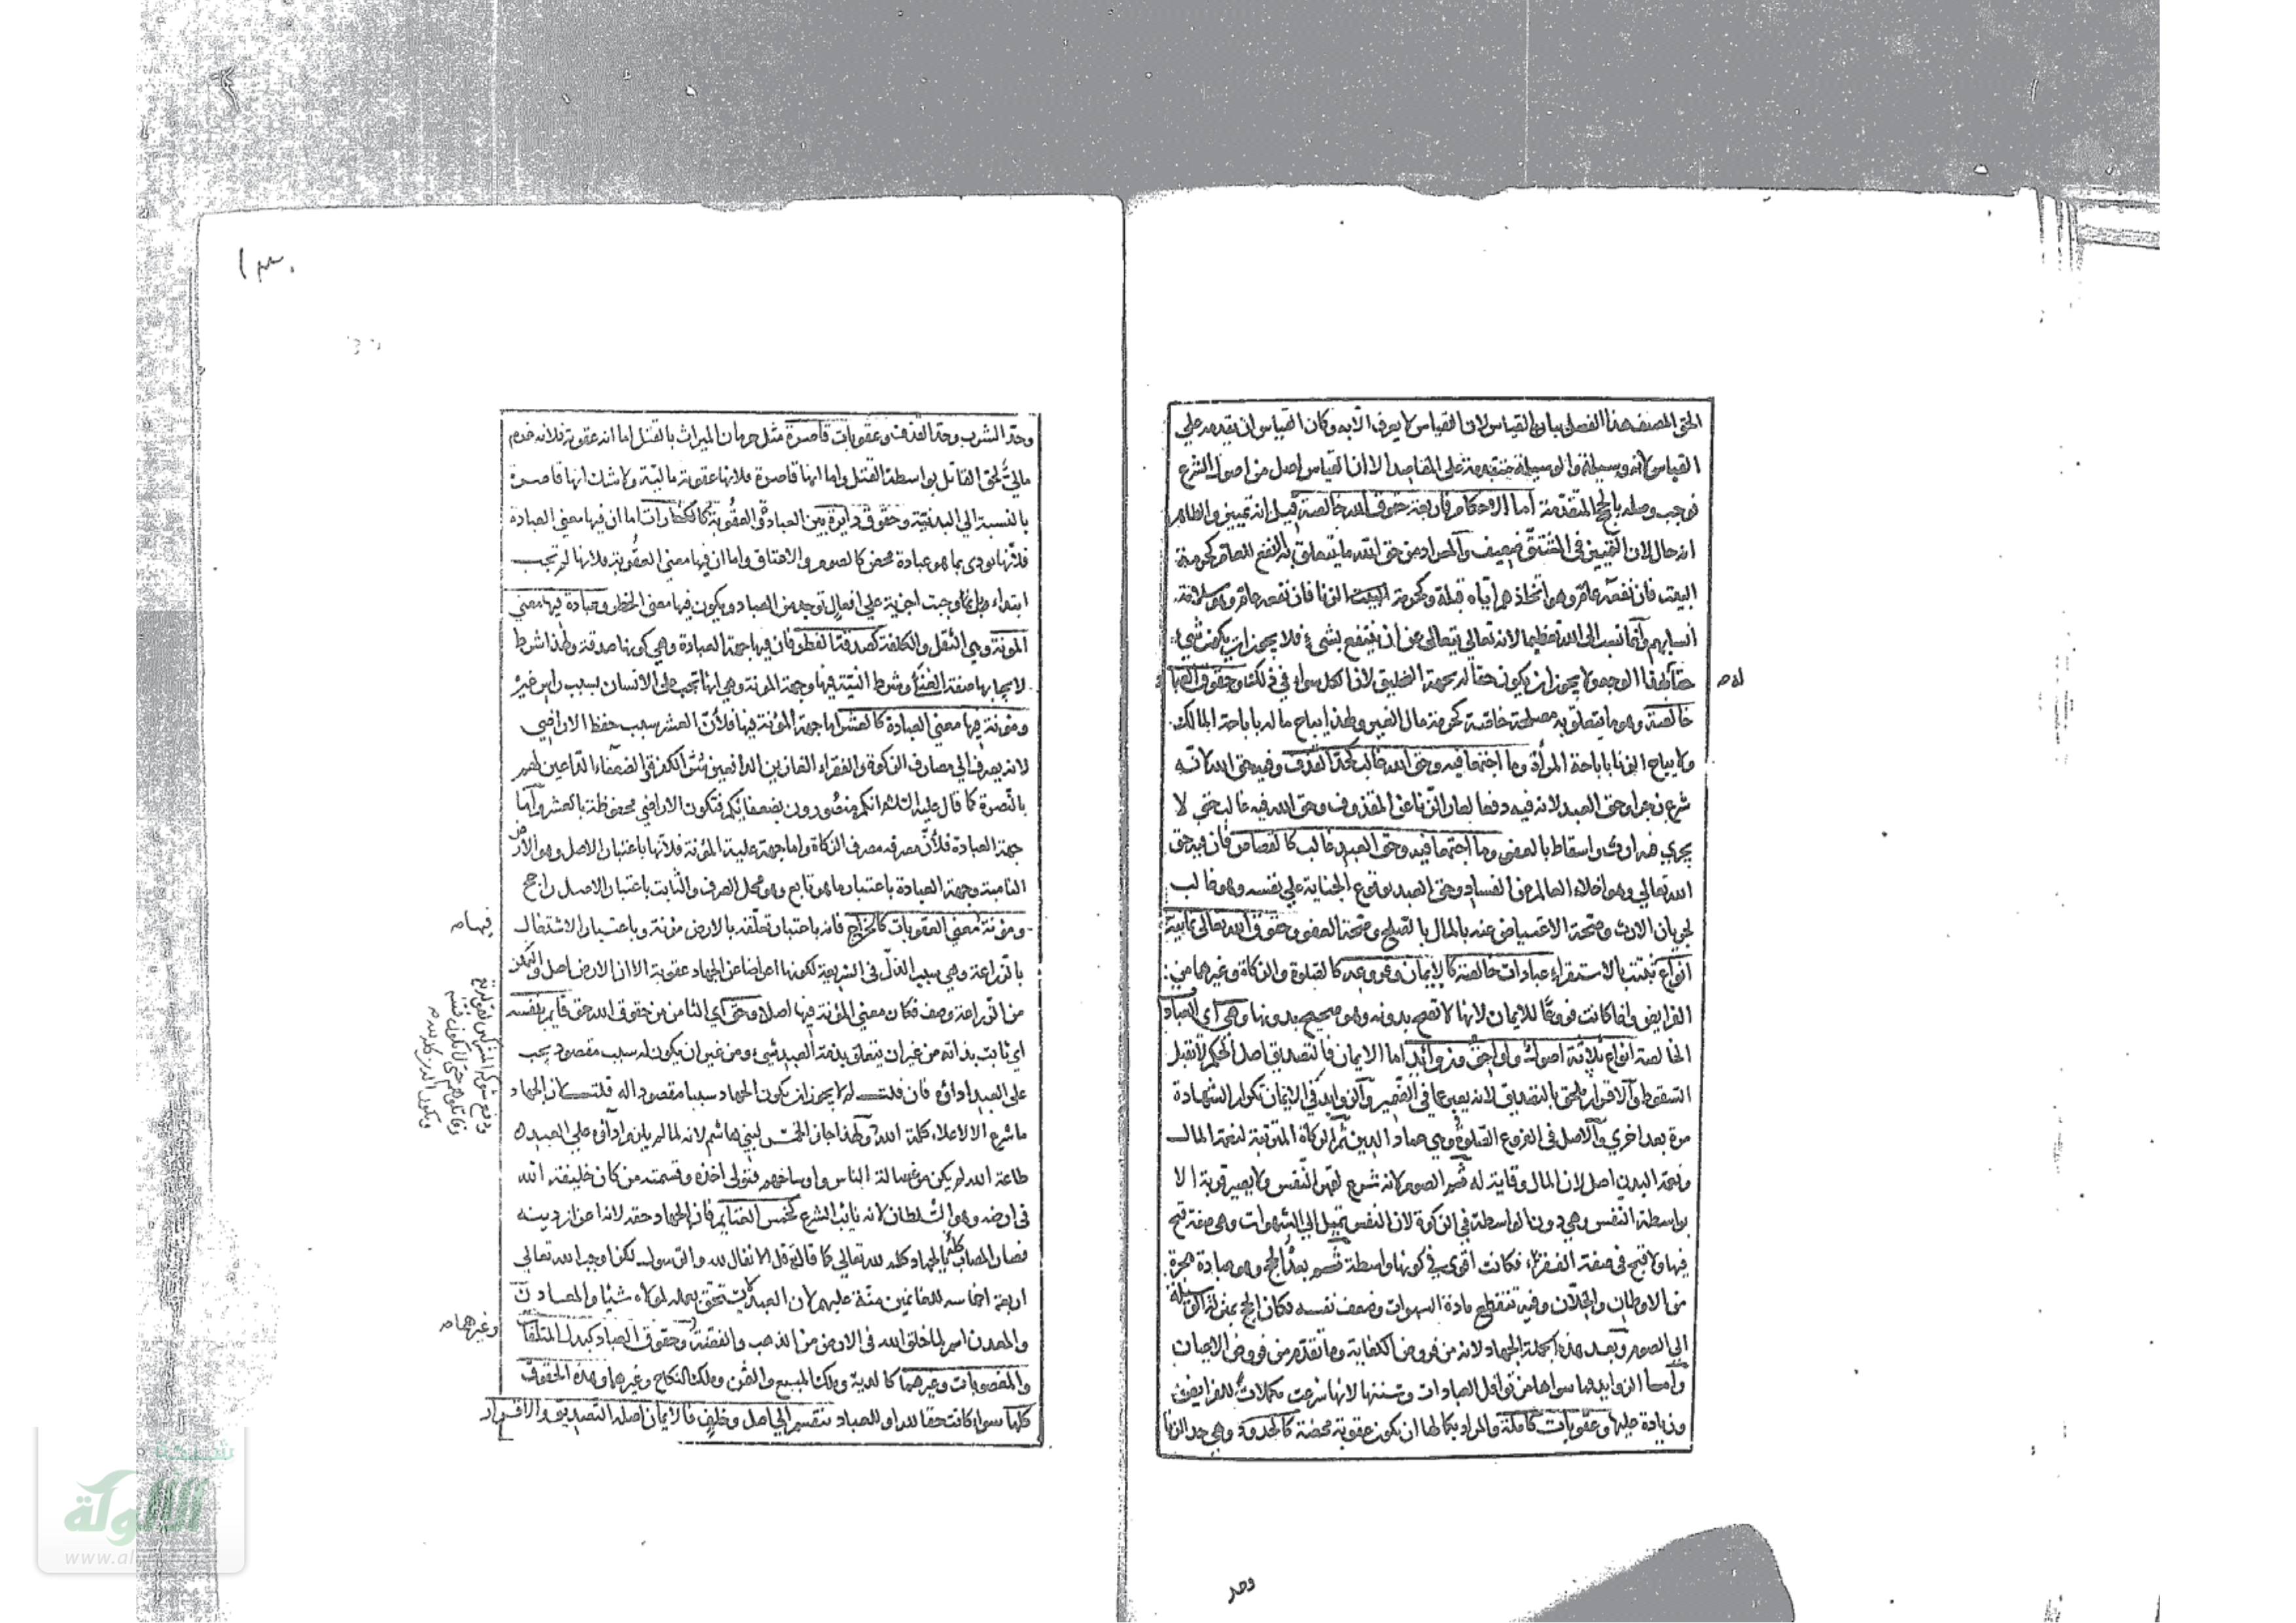 الحق المصنف هذا الفصل ببيان القياس لان القياس لا يعرف الا به وكان القياس ان يقدمه علي
القياس لانه وسيلة والوسيلة متقدمة على المقاصد الا ان القياس اصل من اصول الشرع
فوجب وصله بالحجج المتقدمة أما الاحكام فاربعة حقوق الله خالصة قيل انه تمييز والظاهر
انه حال لان التمييز في المشتق ضعيف والمراد من حق الله ما يتعلق به النفع العام كحرمة
البيت فان نفعه عام وهو اتخاذهم اياه قبلة وكحرمة الزنا فان نفعه عام وهو سلامة
أنسابهم وانما نسب الى الله تعظيما لانه تعالى يتعالى عن ان ينتفع بشيء فلا يجوز ان يكون شيء
حقا له بهذا الوجه ولا يجوز ان يكون حقا له بجهة التخليق لان الكل سواء في ذلك وحقوق العباد
خالصة وهو ما يتعلق به مصلحة خاصة كحرمة مال الغير ولهذا يباح ماله باباحة المالك
ولا يباح الزنا باباحة المرأة وما اجتمعا فيه وحق الله غالب كحد القذف وفيه حق الله لانه
شرع زجرا وحق العبد لانه فيه دفعا لعار الزنا عن المقذوف وحق الله فيه غالب حتي لا
يجري فيه ارث واسقاط بالعفو وما اجتمعا فيه وحق العبد غالب كالقصاص فان فيه حق
الله تعالي وهو اخلاء العالم عن الفساد وحق العبد بوقوع الجناية علي نفسه وهو غالب
لجريان الارث وصحة الاعتياض عنه بالمال بالصلح وصحة العفو وحقوق الله تعالى ثمانية
انواع ثبتت بالاستقراء عبادات خالصة كالايمان وفروعه كالصلوة والزكاة وغيرهما من
الفرايض وانما كانت فروعًا للايمان لانها لا تصح بدونه وهو صحيح بدونها وهي اي العبادات
الخالصة انواع ثلاثة اصول ولواحق وزوائد اما الايمان فالتصديق اصل محكم لا تقبل
السقوط والاقرار ملحق بالتصديق لانه يعبر عما في الضمير والزوايد في الايمان تكرار الشهادة
مرة بعد اخري والاصل في الفروع الصلوة وهي عماد الدين ثم الزكاة المترتبة لنعمة المال
ونعمة البدن اصل لان المال وقاية له ثم الصوم لانه شرع لقهر النفس ولا يصير قربة الا
بواسطة النفس وهي دون الواسطة في الزكوة لان النفس تميل الى الشهوات وهي صفة قبح
فيها ولا قبح في صفة الفقراء فكانت اقوى في كونها واسطة ثم بعد الحج وهو عبادة هجرة
من الاوطان والخلان وفيه تنقطع مادة الشهوات وضعف نفسه فكان الحج بمنزلة الوسيلة
الى الصوم وبعد هذه الجملة الجهاد لانه من فروض الكفاية وما تقدم من فروض الاعيان
وأما الزوايد فما سواها من نوافل العبادات وسننها لانها شرعت مكملات للفرايض
وزيادة عليها وعقوبات كاملة والمراد بكمالها ان يكون عقوبة محضة كالحدود وهي حد الزنا
له م
وحد
وحد الشرب وحد القذف وعقوبات قاصرة مثل حرمان الميراث بالقتل اما انه عقوبة فلانه غرم
مالي لحق القاتل بواسطة القتل واما انها قاصرة فلانها عقوبة مالية ولا شك انها قاصرة
بالنسبة الى البدنية وحقوق دايرة بين العبادة والعقوبة كالكفارات اما ان فيها معني العبادة
فلانها تودى بما هو عبادة محض كالصوم والاعتاق واما ان فيها معنى العقوبة فلانها لم تجب
ابتداء بل وجبت اجزية علي افعال توجد من العباد ويكون فيها معنى الحظر وعبادة فيها معني
المونة وهي الثقل والكلفة كصدقة الفطر فان فيها جهة العبادة وهي كونها صدقة ولهذا شرط
لايجابها صفة الغناء وشرط النية فيها وجهة المونة وهي انها تجب على الانسان بسبب راس غيره
ومونة فيها معني العبادة كالعشر اما جهة المؤنة فيها فلأن العشر سبب حفظ الاراضي
لانه يصرف الى مصارف الزكوة والفقراء الغازين الدافعين شر الكفرة والضعفاء الداعين لهم
بالنصرة كما قال عليه السلام انكم منصورون بضعفائكم فتكون الاراضي محفوظة بالعشر وأما
جهة العبادة فلأن مصرفه مصرف الزكاة واما جهة غلبة المؤنة فلانها باعتبار الاصل وهو الارض
النامية وجهة العبادة باعتبار ما هو تابع وهو محل الصرف والثابت باعتبار الاصل راجح
ومؤنة معني العقوبات كالخراج فانه باعتبار تعلقه بالارض مؤنة وباعتبار الاشتغال
بالزراعة وهي سبب الذل في الشريعة لكونها اعراضا عن الجهاد عقوبة الا ان الارض اصل والتمكن
من الزراعة وصف فكان معني المؤنة فيها اصلا وحق اي الثامن من حقوق الله حق قايم بنفسه
اي ثابت بذاته من غير ان يتعلق بذمة العبد شيء ومن غير ان يكون له سبب مقصود يجب
على العبد اداؤه فان قلت لم لا يجوز ان يكون الجهاد سببا مقصودا له قلت لان الجهاد
ما شرع الا لاعلاء كلمة الله ولهذا جاز الخمس لبني هاشم لانه لما لم يلزم اداؤه علي العبد
طاعة الله لم يكن من غسالة الناس واوساخهم فتولى اخذه وقسمته من كان خليفة الله
في ارضه وهو السلطان لانه نايب الشرع كخمس الغنايم فان الجهاد حقه لانه اعزاز دينه
فصار المصاب بالجهاد كله لله تعالي كما قال قل الانفال لله والرسول لكن اوجب الله تعالي
اربعة اخماسه للغانمين منة عليهم لان العبد لا يستحق بعمله لمولاه شيًا والمعادن
والمعدن اسم لما خلق الله في الارض من الذهب والفضة وحقوق العباد كبدل المتلفات
والمغصوبات وغيرهما كالدية وملك المبيع والثمن وملك النكاح وغيرها وهذه الحقوق
كلها سواء كانت حقا لله او للعباد تنقسم الى اصل وخلف فالايمان اصله التصديق والاقرار
فيها م
ودفع شوكة المشركين لقوله تع
وقاتلوهم حتى لا تكون فتنة
ويكون الدين كله لله م
وغيرهما م
شبكة
الألوكة